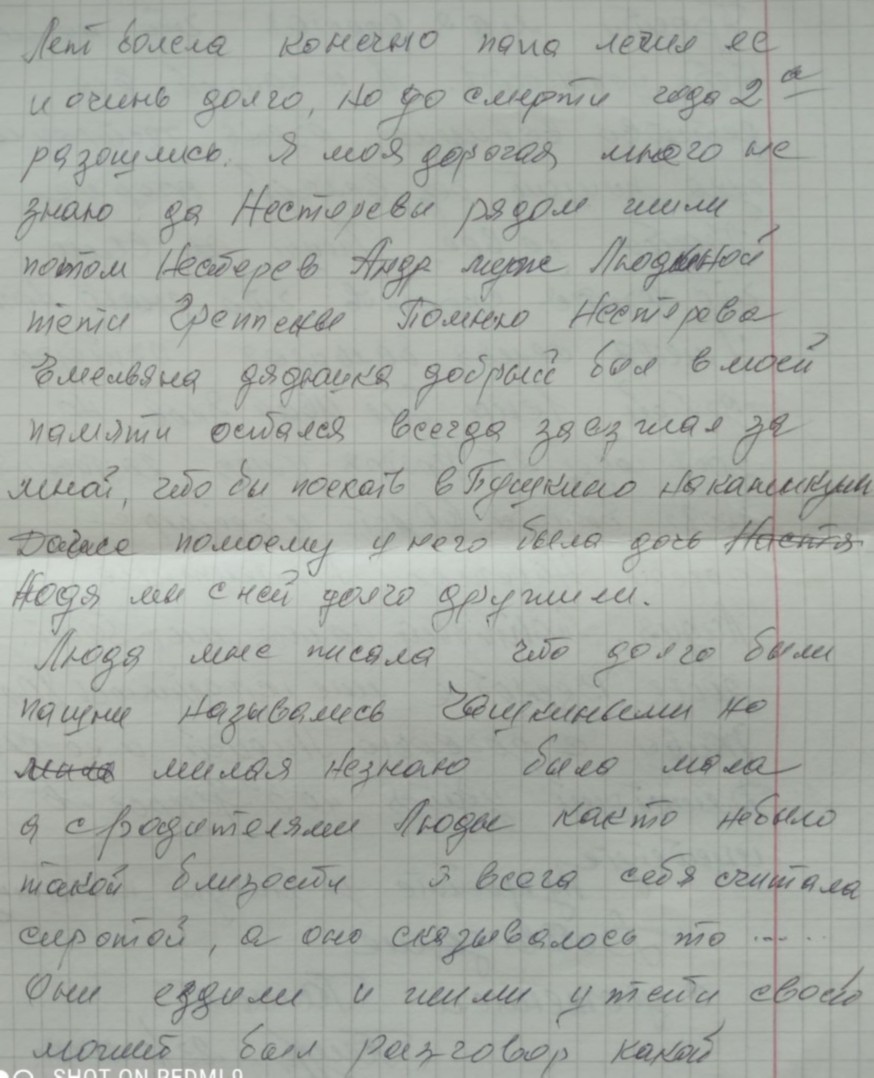 Лет болела конечно папа лечил ее
и очинь долго, но до смерти года 2а
разошлись. Я моя дорогая много не
знаю да Нестеревы рядом жили
потом Нестерев Андр муж Людиной
тети Помню Нестерова
Емельяна дядюшка добрый был в моей
памяти остался всегда заезжал за
мной, что бы поехать в Пушкино на каникулы
Дальше помоему у него была дочь Настя
Надя мы с ней долго дружили.
Люда мне писала что долго были
пашни назывались Чашкиными но
милая незнаю была мала
а с Родителями Люды както небыло
такой близости я всега себя считала
сиротой, а оно сказывалось то .....
Они ездили и жили у тети своей
может был разговор какой
SHOT ON REDMI 9